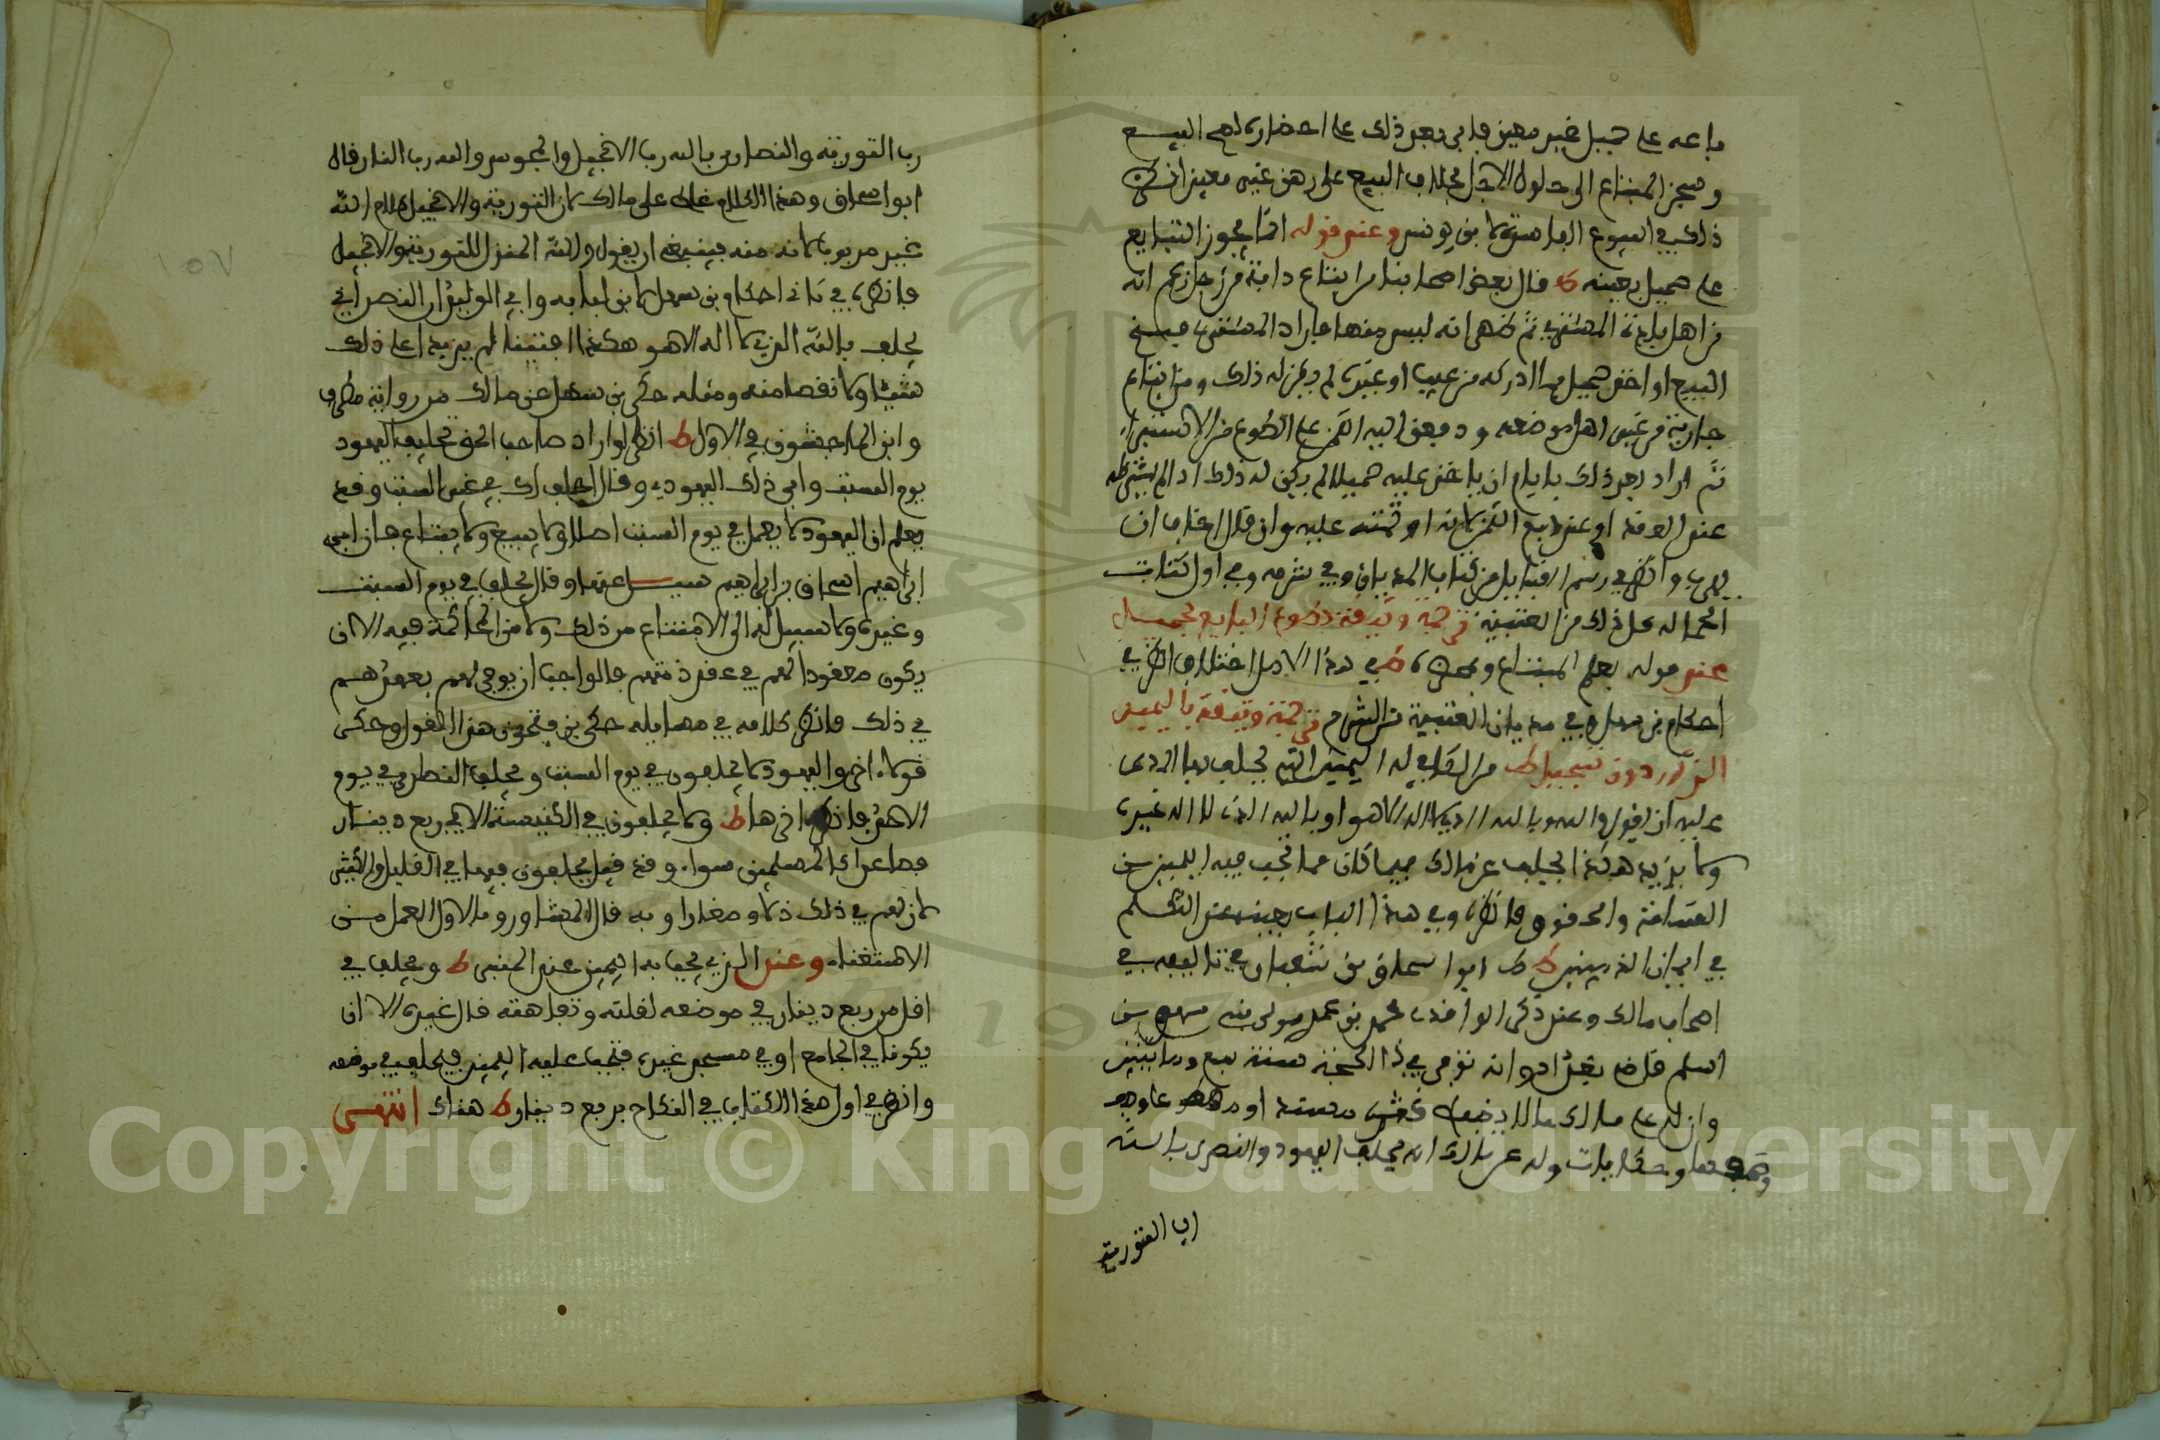 باعه على حميل غير معين فابى بعد ذلك على احضاره لهم البيع
وصجر المبتاع الى حلول الاجل بخلاف البيع على رهن غير معين انظر
ذلك في البيوع الفاسدة لابن يونس وعند قوله انما يجوز التبايع
على حميل بعينه ط قال بعض اصحابنا من ابتاع دابة من رجل زعم انه
من اهل بلدة المشتري ثم ظهر انه ليس منها فاراد المشتري فسخ
البيع او اخذ حميل بما ادركه من عيب او غيره لم يكن له ذلك ومن ابتاع
جارية من غير اهل موضعه ودفع اليه الثمن على الطوع من الاستبراء
ثم اراد بعد ذلك بايام ان ياخذ عليه حميلا لم يكن له ذلك اذا لم يشترطه
عند العقد او عند دفع الثمن لانه اؤتمنه عليه وان قال اخاف ان
يهرب وانظر في رسم القبايل من كتاب المديان وفي شرحه وفي اول كتاب
الحمالة على ذلك من العتبية ترجمة وثيقة تطوع البايع بحميل
عند قوله بعلم المبتاع ومحضره ط في هذا الاصل اختلاف انظر في
احكام بن سهل وفي مديان العتبية من الشرح ترجمة وثيقة باليمين
التي ترد دون تسجيل ط من الكافي له اليمين التي يحلف بها المدعى
عليه ان يقول والله وبالله الذي لا اله الا هو او بالله الذي لا اله غيره
ولا يزيد هكذا يحلف عند مالك فيما كان مما تجب فيه اليمين من
القسامة والحقوق فانظره وفي هذا الباب بعينه عند التكلم
في ايمان الذميين ط ط ابو اسحاق بن شعبان في تاليفه في
اصحاب مالك وعند ذكر الواقدي محمد بن عمر مولى بني سهم بن
اسلم قاض بغداد وانه توفي في ذي الحجة سنة سبع ومايتين
وان له على مالك مسايل
وله عن مالك انه يحلف اليهود والنصرى بالله
رب التورية
رب التورية والنصارى بالله رب الانجيل والمجوس والله رب النار قال
ابو اسحاق وهذا الكلام غلط على مالك لان التورية والانجيل كلام الله
غير مربوب لانه منه فينبغي ان يقول والله المنزل للتورية والانجيل
فانظره في ثاني احكام بن سهل لابن لبابة وابي الوليد ان النصراني
يحلف بالله الذي لا اله الا هو هكذا افتينا لم يزيدا على ذلك
شيئا ولا نقصا منه ومثله حكى بن سهل عن مالك من رواية مطرف
وابن الماجشون في الاول ط انظر لو اراد صاحب الحق تحليف اليهود
يوم السبت وابى ذلك اليهودي وقال احلف لك في غير السبت وقد
يعلم ان اليهود لا يعمل في يوم السبت اصلا ولا يبيع ولا يبتاع جاز ابو
ابراهيم اسحاق بن ابراهيم سئل عنها وقال يحلف في يوم السبت
وغيره ولا سبيل له الى الامتناع من ذلك ولا من المحاكمة فيه الا ان
يكون معقودا لهم في عقد ذمتهم فالواجب ان يوفى لهم بعهدهم
في ذلك فانظر كلامه في مسايله حكى بن فتحون هذا القول وحكى
قولا اخر اليهود لا يحلفون في يوم السبت ويحلف النصارى في يوم
الاحد فانظر اخرها ط ولا يحلفون في الكنيسة الا في ربع دينار
فصاعدا كالمسلمين سواء وقد قيل يحلفون فيها في القليل والكثير
لان لهم في ذلك ذلا وصغارا وبه قال المشاور وبالاول العمل من
الاستغناء وعند الذي يجب به اليمين عند المنبر ط ويحلف في
اقل من ربع دينار في موضعه لقلته وتفاهته قال غيره الا ان
يكونا في الجامع او في مسجد غيره فتجب عليه اليمين فيحلف في موضعه
وانظر في اول هذا الكتاب في النكاح بربع دينار ط هناك انتهى
١٥٧
Copyright © King Saud University